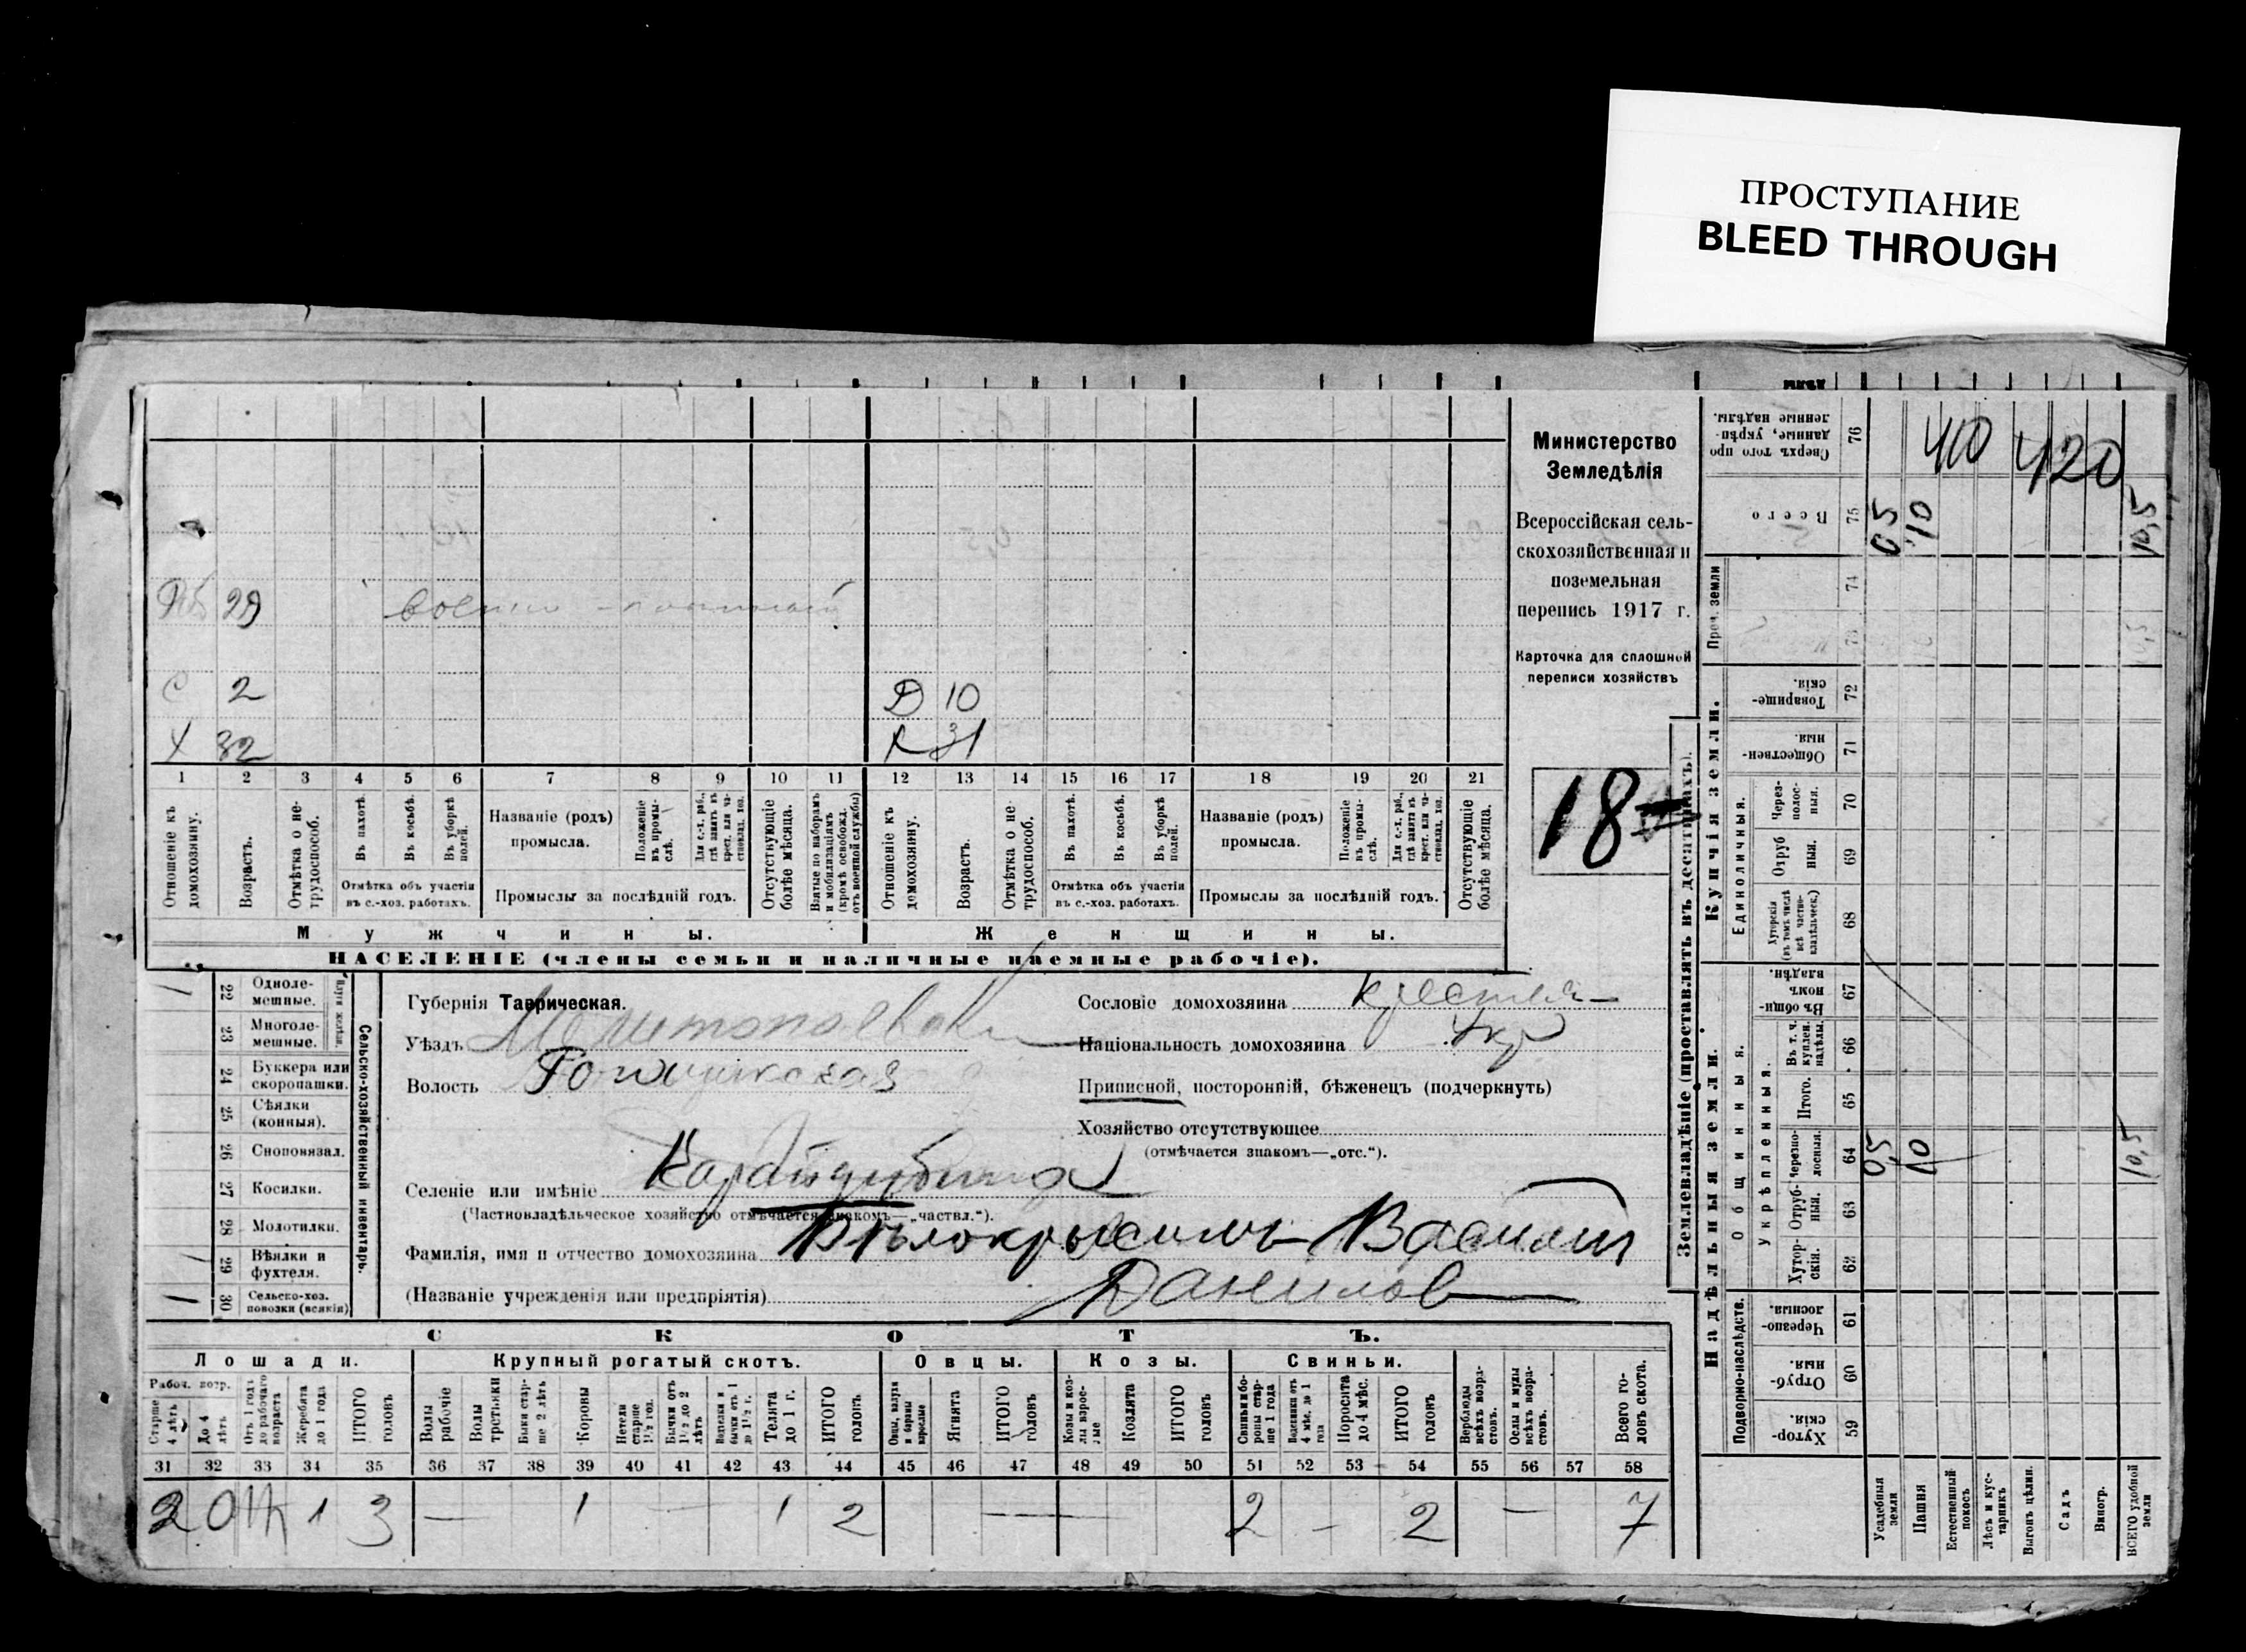 ПРОСТУПАНИЕ
BLEED THROUGH
Министерство
Земледѣлія
Всероссійская сель-
скохозяйственная и
поземельная
перепись 1917 г.
Карточка для сплошной
переписи хозяйствъ
18
29
С 2 Д 10
Х 32 31
1 2 3 4 5 6 7 8 9 10 11 12 13 14 15 16 17 18 19 20 21
Отношеніе къ домохозяину.
Возрастъ.
Отмѣтка о не-трудоспособ.
Въ пахотѣ.
Въ косьбѣ.
Въ уборкѣ полей.
Отмѣтка объ участіи
въ с.-хоз. работахъ.
Названіе (родъ)
промысла.
Положеніе въ промы-слѣ.
Для с.-х. раб., гдѣ занятъ въ крест. или ча-стновлад. хоз.
Промыслы за послѣдній годъ.
Отсутствующіе болѣе мѣсяца.
Взятые по наборамъ и мобилизаціямъ (кромѣ освобожд. отъ военной службы)
Отношеніе къ домохозяину.
Возрастъ.
Отмѣтка о не-трудоспособ.
Въ пахотѣ.
Въ косьбѣ.
Въ уборкѣ полей.
Отмѣтка объ участіи
въ с.-хоз. работахъ.
Названіе (родъ)
промысла.
Положеніе въ промы-слѣ.
Для с.-х. раб., гдѣ занята въ крест. или ча-стновлад. хоз.
Промыслы за послѣдній годъ.
Отсутствующіе болѣе мѣсяца.
Мужчины. Женщины.
НАСЕЛЕНІЕ (члены семьи и наличные наемные рабочіе).
22 Одноле-мешные.
23 Многоле-мешные.
24 Буккера или скоропашки.
25 Сѣялки (конныя).
26 Сноповязал.
27 Косилки.
28 Молотилки.
29 Вѣялки и фухтеля.
30 Сельско-хоз. повозки (всякія)
Сельско-хозяйственный инвентарь.
Губернія Таврическая.
Уѣздъ Мелитопольскій
Волость
Селеніе или имѣніе
(Частновладѣльческое хозяйство отмѣчается знакомъ—„частвл.“).
Фамилія, имя и отчество домохозяина Василій
(Названіе учрежденія или предпріятія) Данилов
Сословіе домохозяина
Національность домохозяина Укр
Приписной, посторонній, бѣженецъ (подчеркнуть)
Хозяйство отсутствующее
(отмѣчается знакомъ—„отс.“).
СКОТЪ.
Лошади. Крупный рогатый скотъ. Овцы. Козы. Свиньи.
Старше 4 лѣтъ
До 4 лѣтъ
Отъ 1 года до рабочаго возраста
Жеребята до 1 года
ИТОГО головъ
Волы рабочіе
Волы третьяки
Быки стар-ше 2 лѣтъ
Коровы
Нетели старше 1½ год.
Бычки отъ 1½ до 2 лѣтъ
Телята до 1 г.
ИТОГО головъ
Ягнята
ИТОГО головъ
Козлята
ИТОГО головъ
Поросята до 4 мѣс.
ИТОГО головъ
Верблюды всѣхъ возра-стовъ.
Ослы и мулы всѣхъ возра-стовъ.
Всего го-ловъ скота.
31 32 33 34 35 36 37 38 39 40 41 42 43 44 45 46 47 48 49 50 51 52 53 54 55 56 57 58
2 1 3 — 1 — 1 2 — 2 — 2 — 7
Землевладѣніе (проставлять въ десятинахъ).
Надѣльныя земли.
Купчія земли.
Проч. земли
Подворно-наслѣдств.
Общинныя.
Укрѣпленныя.
Единоличныя.
59 Хутор-скія.
60 Отруб-ныя.
61 Черезпо-лосныя.
62 Хутор-скія.
63 Отруб-ныя.
64 Черезпо-лосныя.
65 Итого.
66 Въ т. ч. куплен. надѣлы.
67 Въ общин-номъ владѣн.
68 Хуторскія (въ томъ числѣ всѣ частно-владѣльческ.)
69 Отруб-ныя.
70 Через-полос-ныя.
71 Обществен-ныя
72 Товарище-скія.
73
74
75 Всего
76 Сверхъ того про-данные, укрѣп-ленные надѣлы.
Усадебныя земли
Пашня
Естественный покосъ
Лѣсъ и кус-тарникъ
Выгонъ цѣлин.
Садъ
Виногр.
ВСЕГО удобной земли
0,5 10 10,5
0,5 10 10,5
410 420